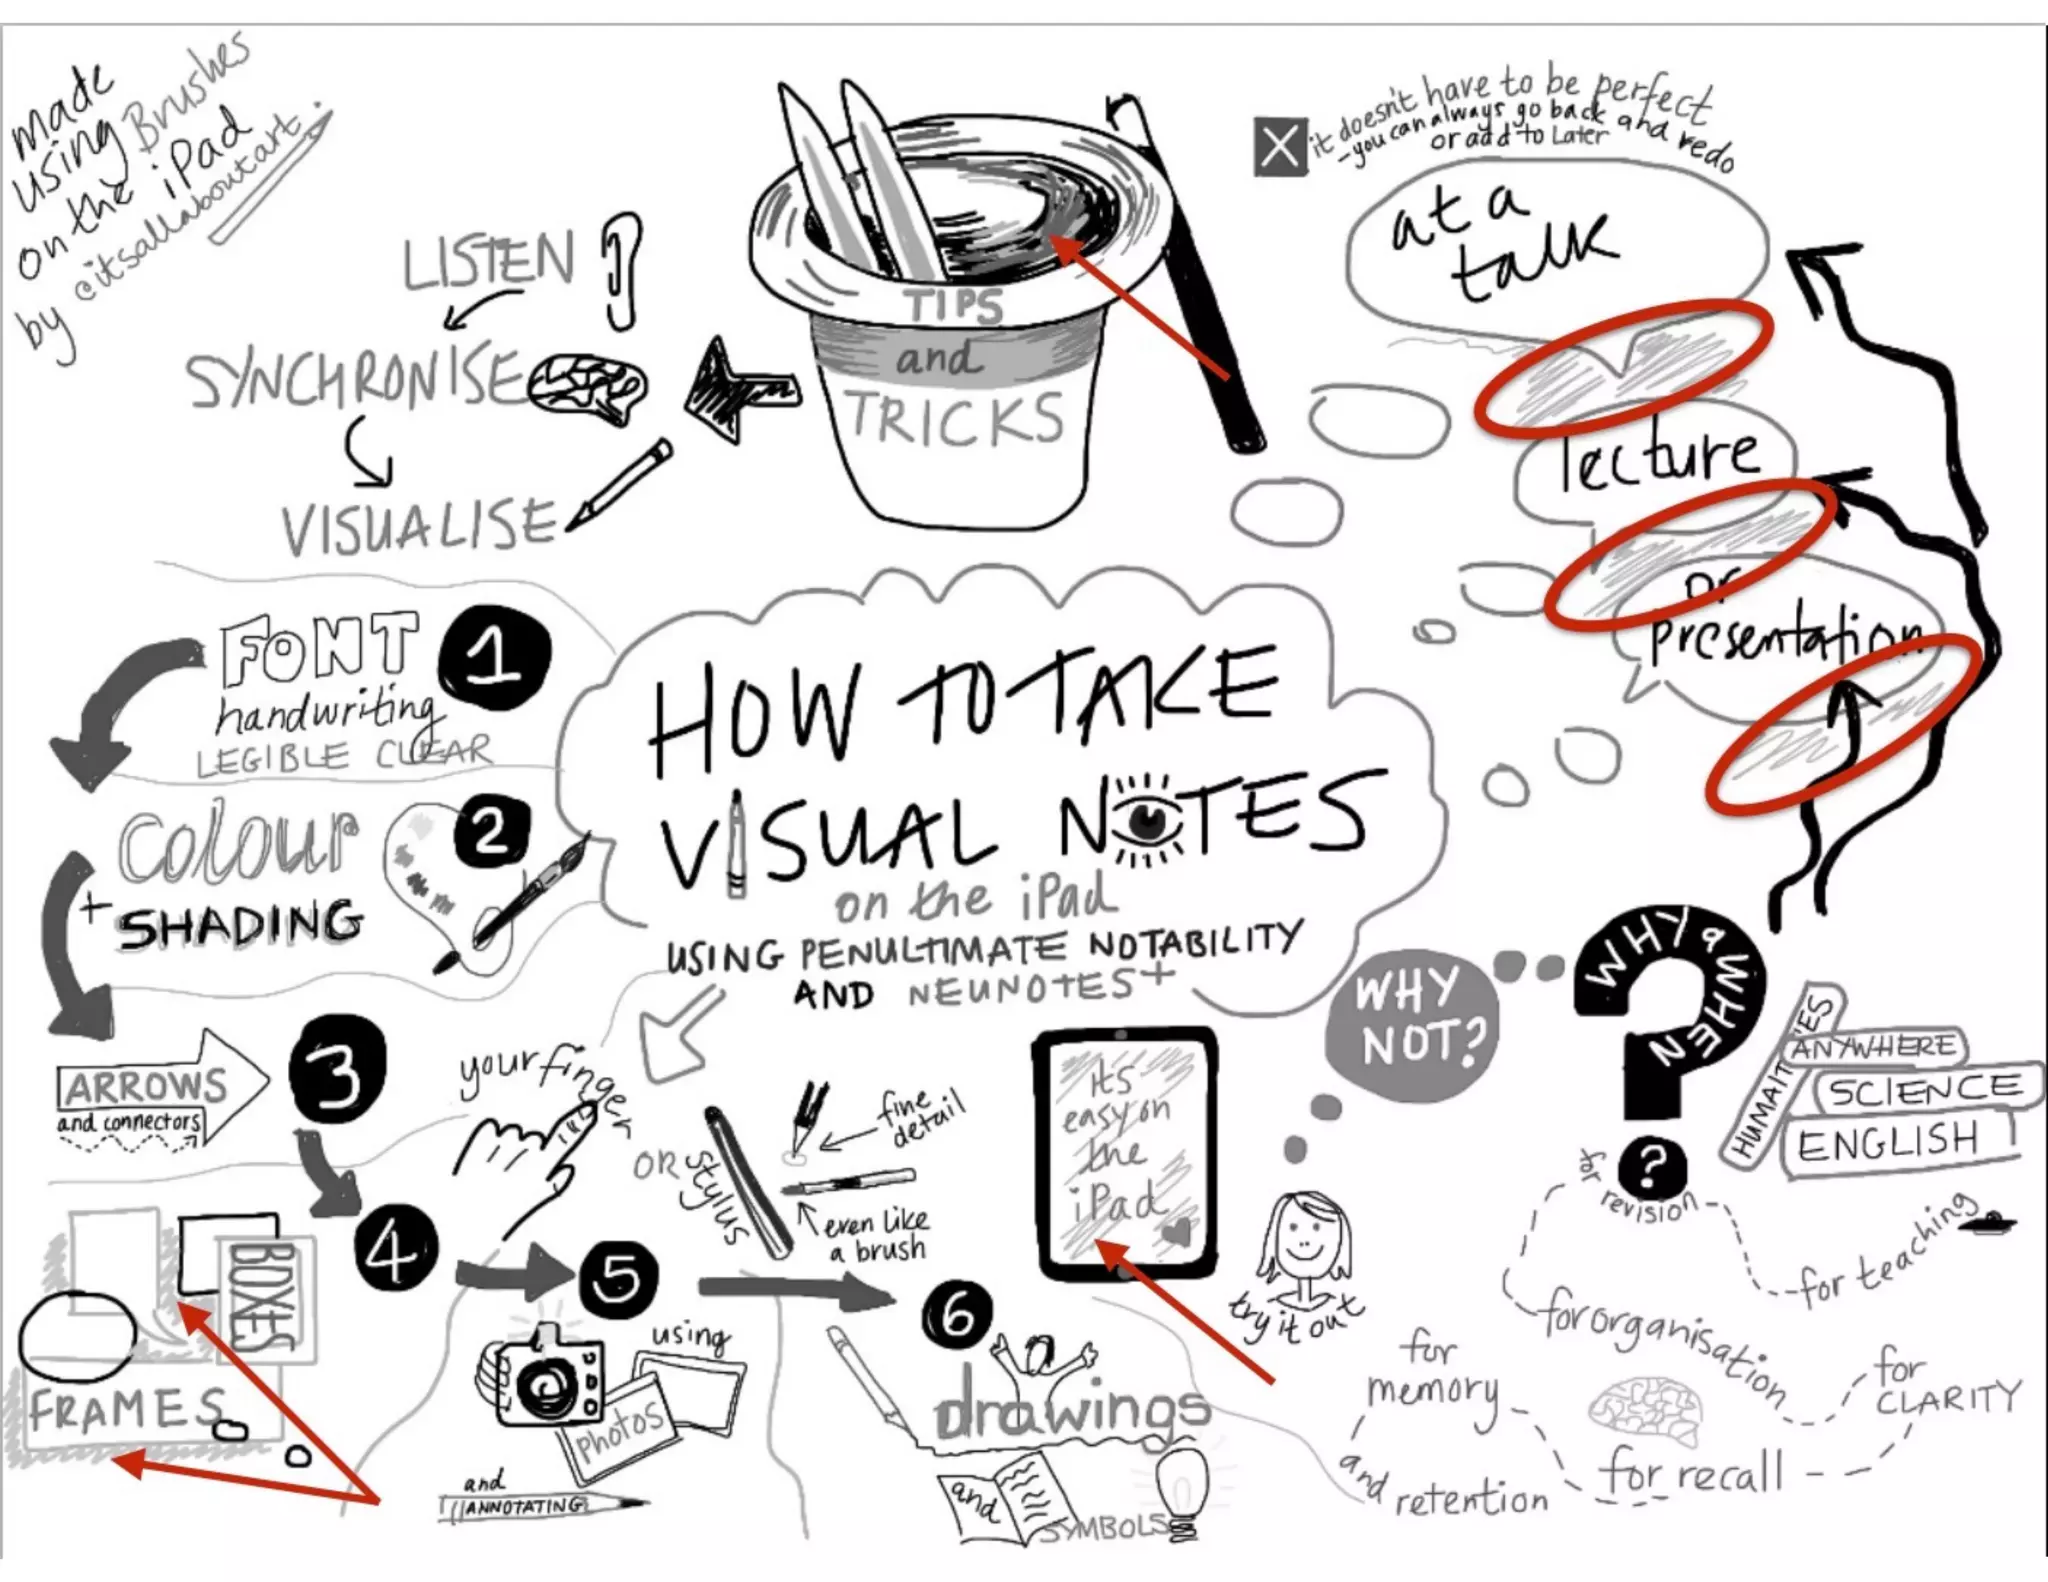 made
using Brushes
on the iPad
by @itsallaboutart.
LISTEN
SYNCHRONISE
VISUALISE
TIPS
and
TRICKS
it doesn't have to be perfect
-you can always go back and redo
or add to Later
at a
talk
lecture
or
presentation
HOW TO TAKE
VISUAL NOTES
on the iPad
USING PENULTIMATE NOTABILITY
AND NEUNOTES+
1
FONT
handwriting
LEGIBLE CLEAR
2
colour
+ SHADING
3
ARROWS
and connectors
4
BOXES
FRAMES
5
using
photos
and
ANNOTATING
6
drawings
and
SYMBOLS
your finger
OR stylus
fine
detail
even like
a brush
its
easy on
the
iPad
WHY
NOT?
try it out
WHY & WHEN
?
HUMAITIES
ANYWHERE
SCIENCE
ENGLISH
for revision
for teaching
for organisation
for
memory
and retention
for recall
for
CLARITY